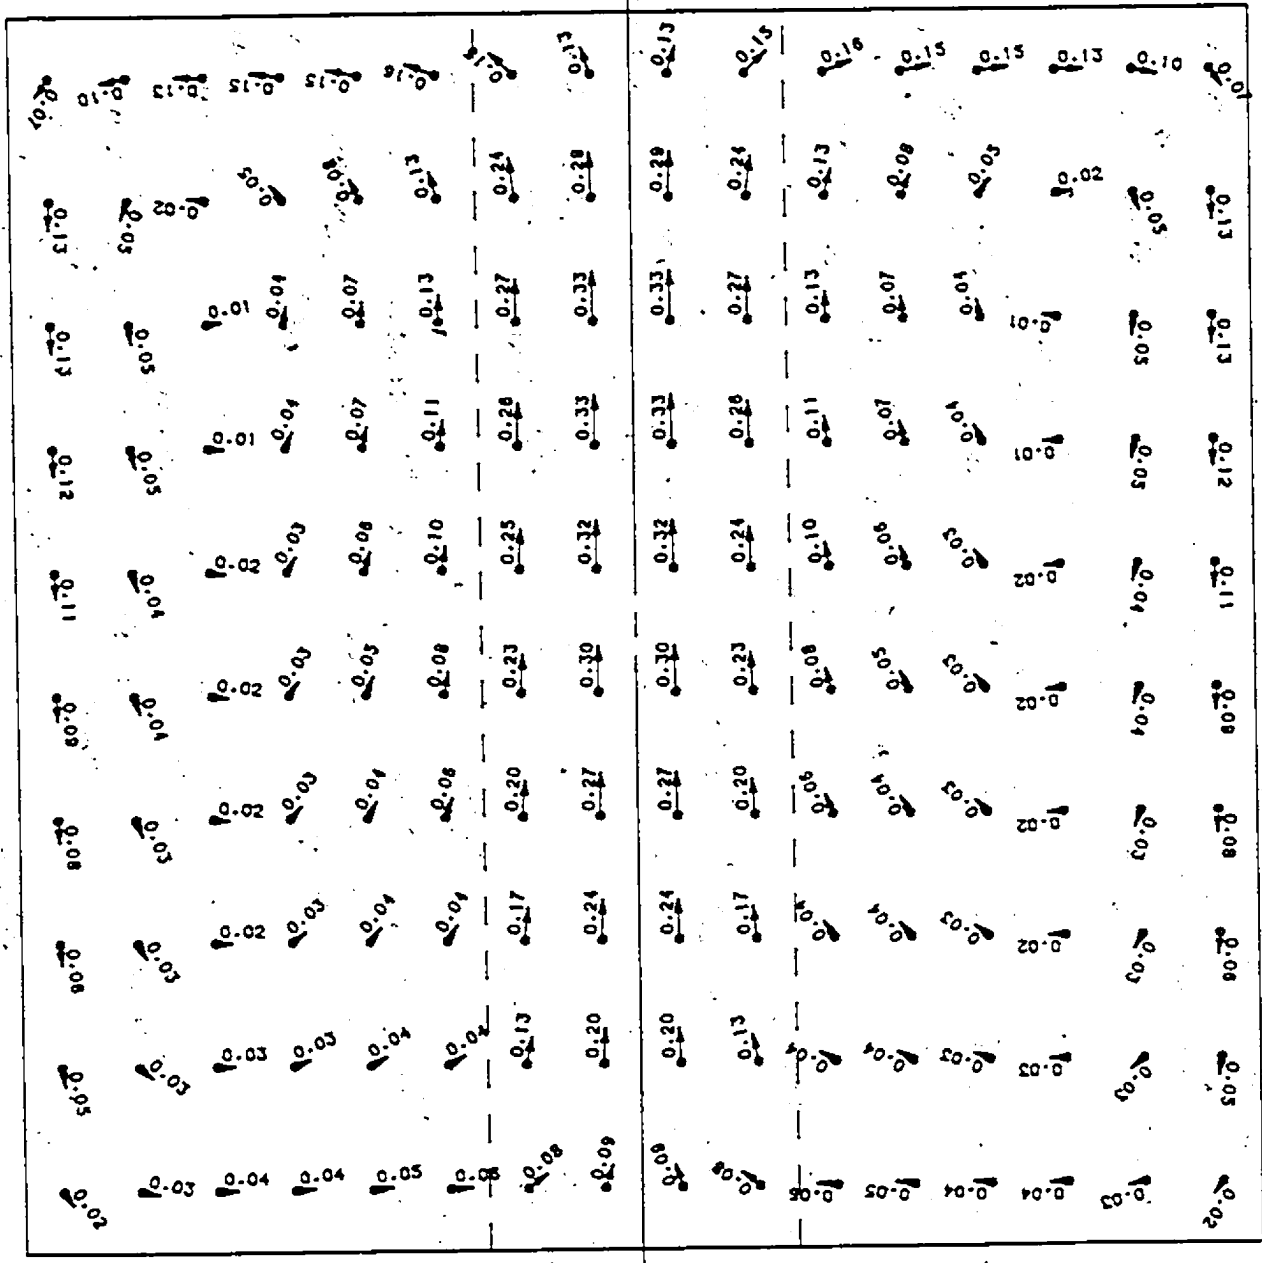 0.07 0.10 0.13 0.15 0.15 0.16 0.15 0.13 0.13 0.15 0.16 0.15 0.15 0.13 0.10 0.07
0.13 0.05 0.02 0.05 0.08 0.13 0.24 0.28 0.29 0.24 0.13 0.08 0.05 0.02 0.05 0.13
0.13 0.05 0.01 0.04 0.07 0.13 0.27 0.33 0.33 0.27 0.13 0.07 0.04 0.01 0.05 0.13
0.12 0.05 0.01 0.04 0.07 0.11 0.26 0.33 0.33 0.26 0.11 0.07 0.04 0.01 0.05 0.12
0.11 0.04 0.02 0.03 0.06 0.10 0.25 0.32 0.32 0.24 0.10 0.06 0.03 0.02 0.04 0.11
0.09 0.04 0.02 0.03 0.05 0.08 0.23 0.30 0.30 0.23 0.08 0.05 0.03 0.02 0.04 0.09
0.08 0.03 0.02 0.03 0.04 0.06 0.20 0.27 0.27 0.20 0.06 0.04 0.03 0.02 0.03 0.08
0.06 0.03 0.02 0.03 0.04 0.04 0.17 0.24 0.24 0.17 0.04 0.04 0.03 0.02 0.03 0.06
0.05 0.03 0.03 0.03 0.04 0.04 0.13 0.20 0.20 0.13 0.04 0.04 0.03 0.03 0.03 0.05
0.02 0.03 0.04 0.04 0.05 0.06 0.08 0.09 0.09 0.08 0.06 0.05 0.04 0.04 0.03 0.02